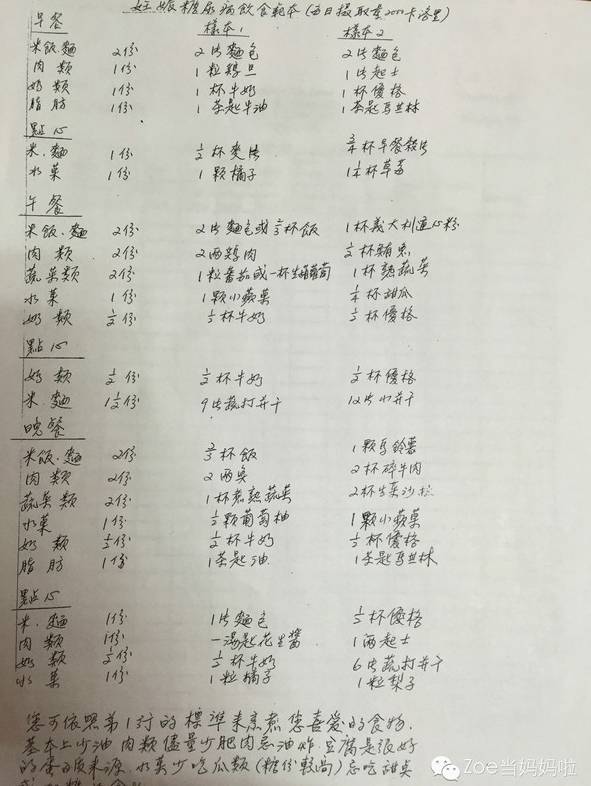 妊娠糖尿病飲食範本(每日攝取量2000卡洛里)
早餐 樣本1 樣本2
米飯.麵 2份 2片麵包 2片麵包
肉類 1份 1粒鷄旦 1片起士
奶類 1份 1杯牛奶 1杯優格
脂肪 1份 1茶匙牛油 1茶匙馬芝林
點心
米.麵 1份 ½杯麥片 ¾杯早餐穀片
水菓 1份 1顆橘子 1¼杯草莓
午餐
米飯.麵 2份 2片麵包或⅔杯飯 1杯義大利通心粉
肉類 2份 2両鷄肉 ½杯鮪魚
蔬菜類 2份 1粒番茄或一杯生蘿蔔 1杯熟蔬菜
水菓 1份 1顆小蘋菓 ¼杯甜瓜
奶類 ½份 ½杯牛奶 ½杯優格
點心
奶類 ½份 ½杯牛奶 ½杯優格
米.麵 1½份 9片蔬打并干 12片小并干
晚餐
米飯.麵 2份 ⅔杯飯 1顆馬鈴薯
肉類 2份 2両魚 2杯碎牛肉
蔬菜類 2份 1杯煮熟蔬菜 2杯生菜沙拉
水菓 1份 ½顆葡萄柚 1顆小蘋菓
奶類 ½份 ½杯牛奶 ½杯優格
脂肪 1份 1茶匙油 1茶匙馬芝林
點心
米.麵 1份 1片麵包 ½杯優格
肉類 1份 一湯匙花生醬 1両起士
奶類 ½份 ½杯牛奶 6片蔬打并干
水菓 1份 1粒橘子 1粒梨子
您可依照第1对的標準來烹煮您喜愛的食物.
基本上少油 肉類儘量少肥肉忌油炸.豆腐是很好
的蛋白质來源.水菓少吃瓜類(糖份較高)忌吃甜奌
Zoe当妈妈啦